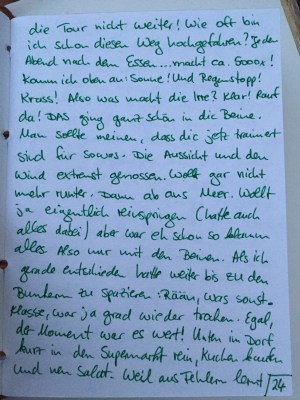 die Tour nicht weiter! Wie oft bin
ich schon diesen Weg hochgefahren? Jeden
Abend nach dem Essen...macht ca. 500x!
Komm ich oben an: Sonne! Und Regenstopp!
Krass! Also was macht die Irre? Klar! Rauf
da! DAS ging ganz schön in die Beine.
Man sollte meinen, dass die jetz trainiert
sind für sowas. Die Aussicht und den
Wind extremst genossen. Wollt gar nicht
mehr runter. Dann ab ans Meer. Wollt
ja eigentlich reinspringen (hatte auch
alles dabei) aber war eh schon so
alles. Also nur mit den Beinen. Als ich
grade entschieden hatte weiter bis zu den
Bunkern zu spazieren: Rääân, was sonst.
Klasse, war ja grad wieder trocken. Egal,
der Moment war es wert! Unten im Dorf
kurz in den Supermarkt rein, Kuchen kaufen
und nen Salat. Weil aus Fehlern lernt
24